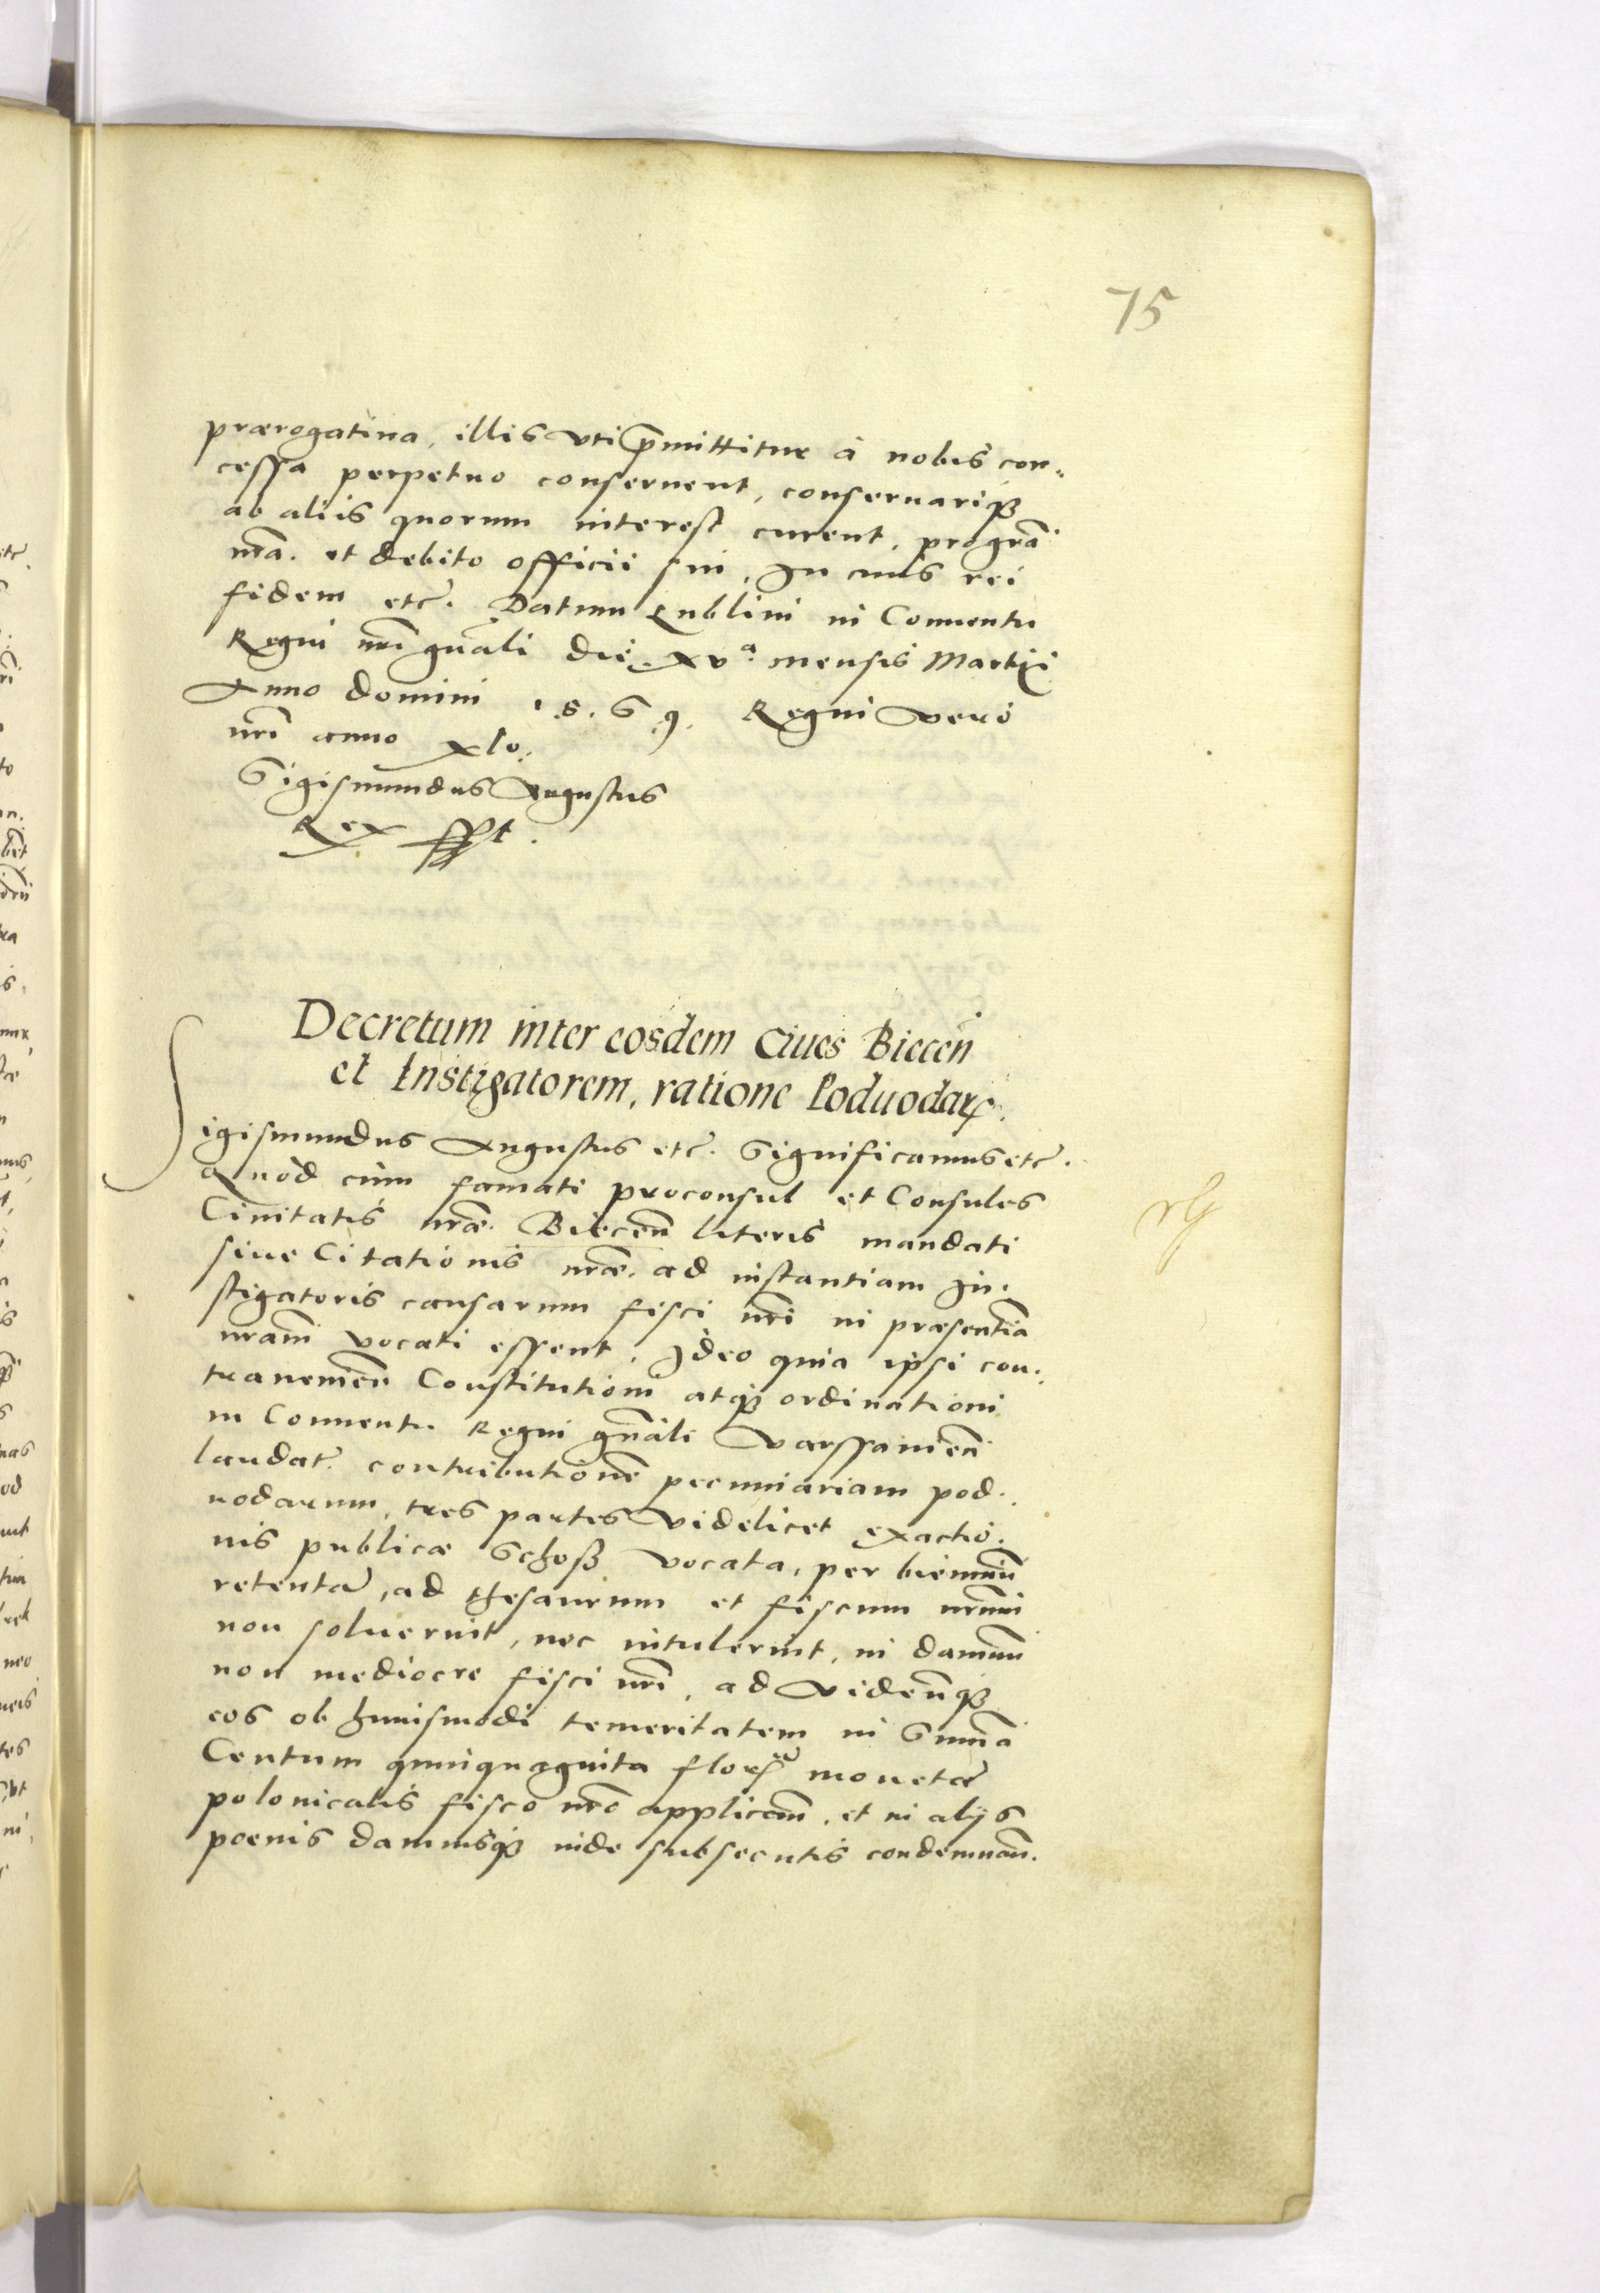 75
prærogatiua, illis vti p̄mittitur à nobis con-
cessa perpetuo conseruent, conseruariq3
ab aliis quorum interest curent, pro grã
nrã. et debito officii sui. In cuius rei
fidem etc. Datum Lublini in Conuentu
Regni nrĩ gnãli die xvª mensis Martii
Anno Domini 1.5.6.9. Regni vero
nrĩ anno xlo.
Sigismundus Augustus
Rex sspt.
Decretum inter eosdem Ciues Biecen̄
et Instigatorem, ratione Poduodarꝝ.
Sigismundus Augustus etc. Significamus etc.
Quod cùm famati proconsul et Consules
Ciuitatis nræ. Biecen̄ literis mandati
siue Citationis nræ. ad instantiam In-
stigatoris causarum fisci nrĩ in præsentiã
nrãm vocati essent. Ideo quia ipsi con-
trauenien̄ Constitutioni atq3 ordinationi
in Conuentu Regni gnãli Varssauien̄
laudat. contributionẽ pecuniariam pod-
uodarum, tres partes videlicet exactio-
nis publicæ Schosß vocata, per bienniũ
retentæ, ad thesaurum et fiscum nrũm
non soluerint, nec intulerint, in damnũ
non mediocre fisci nrĩ, ad viden̄q3
eos ob huiusmodi temeritatem in Summa
Centum quinquaginta florꝝ monetæ
polonicalis fisco nrõ applican̄. et in alijs
poenis damnisq3 inde subsecutis condemnan̄.